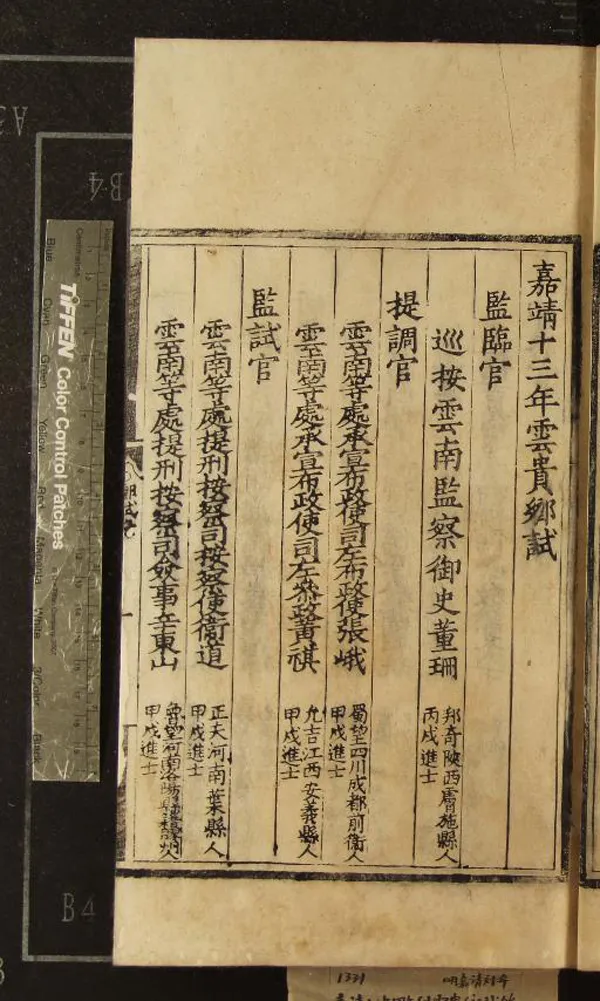 嘉靖十三年雲貴鄉試
監臨官
巡按雲南監察御史董珊
邦奇陝西膚施縣人
丙戌進士
提調官
雲南等處承宣布政使司左布政使張峨
蜀望四川成都前衛人
甲戌進士
雲南等處承宣布政使司左叅政黃祺
允吉江西安義縣人
甲戌進士
監試官
雲南等處提刑按察司按察使衞道
正夫河南葉縣人
甲戌進士
雲南等處提刑按察司僉事辛東山
魯望河南洛陽縣
甲戌進士
TIFFEN Color Control Patches
Blue
Cyan
Green
Yellow
Red
Magenta
White
3/Color
Black
B4
A3
B4
1331